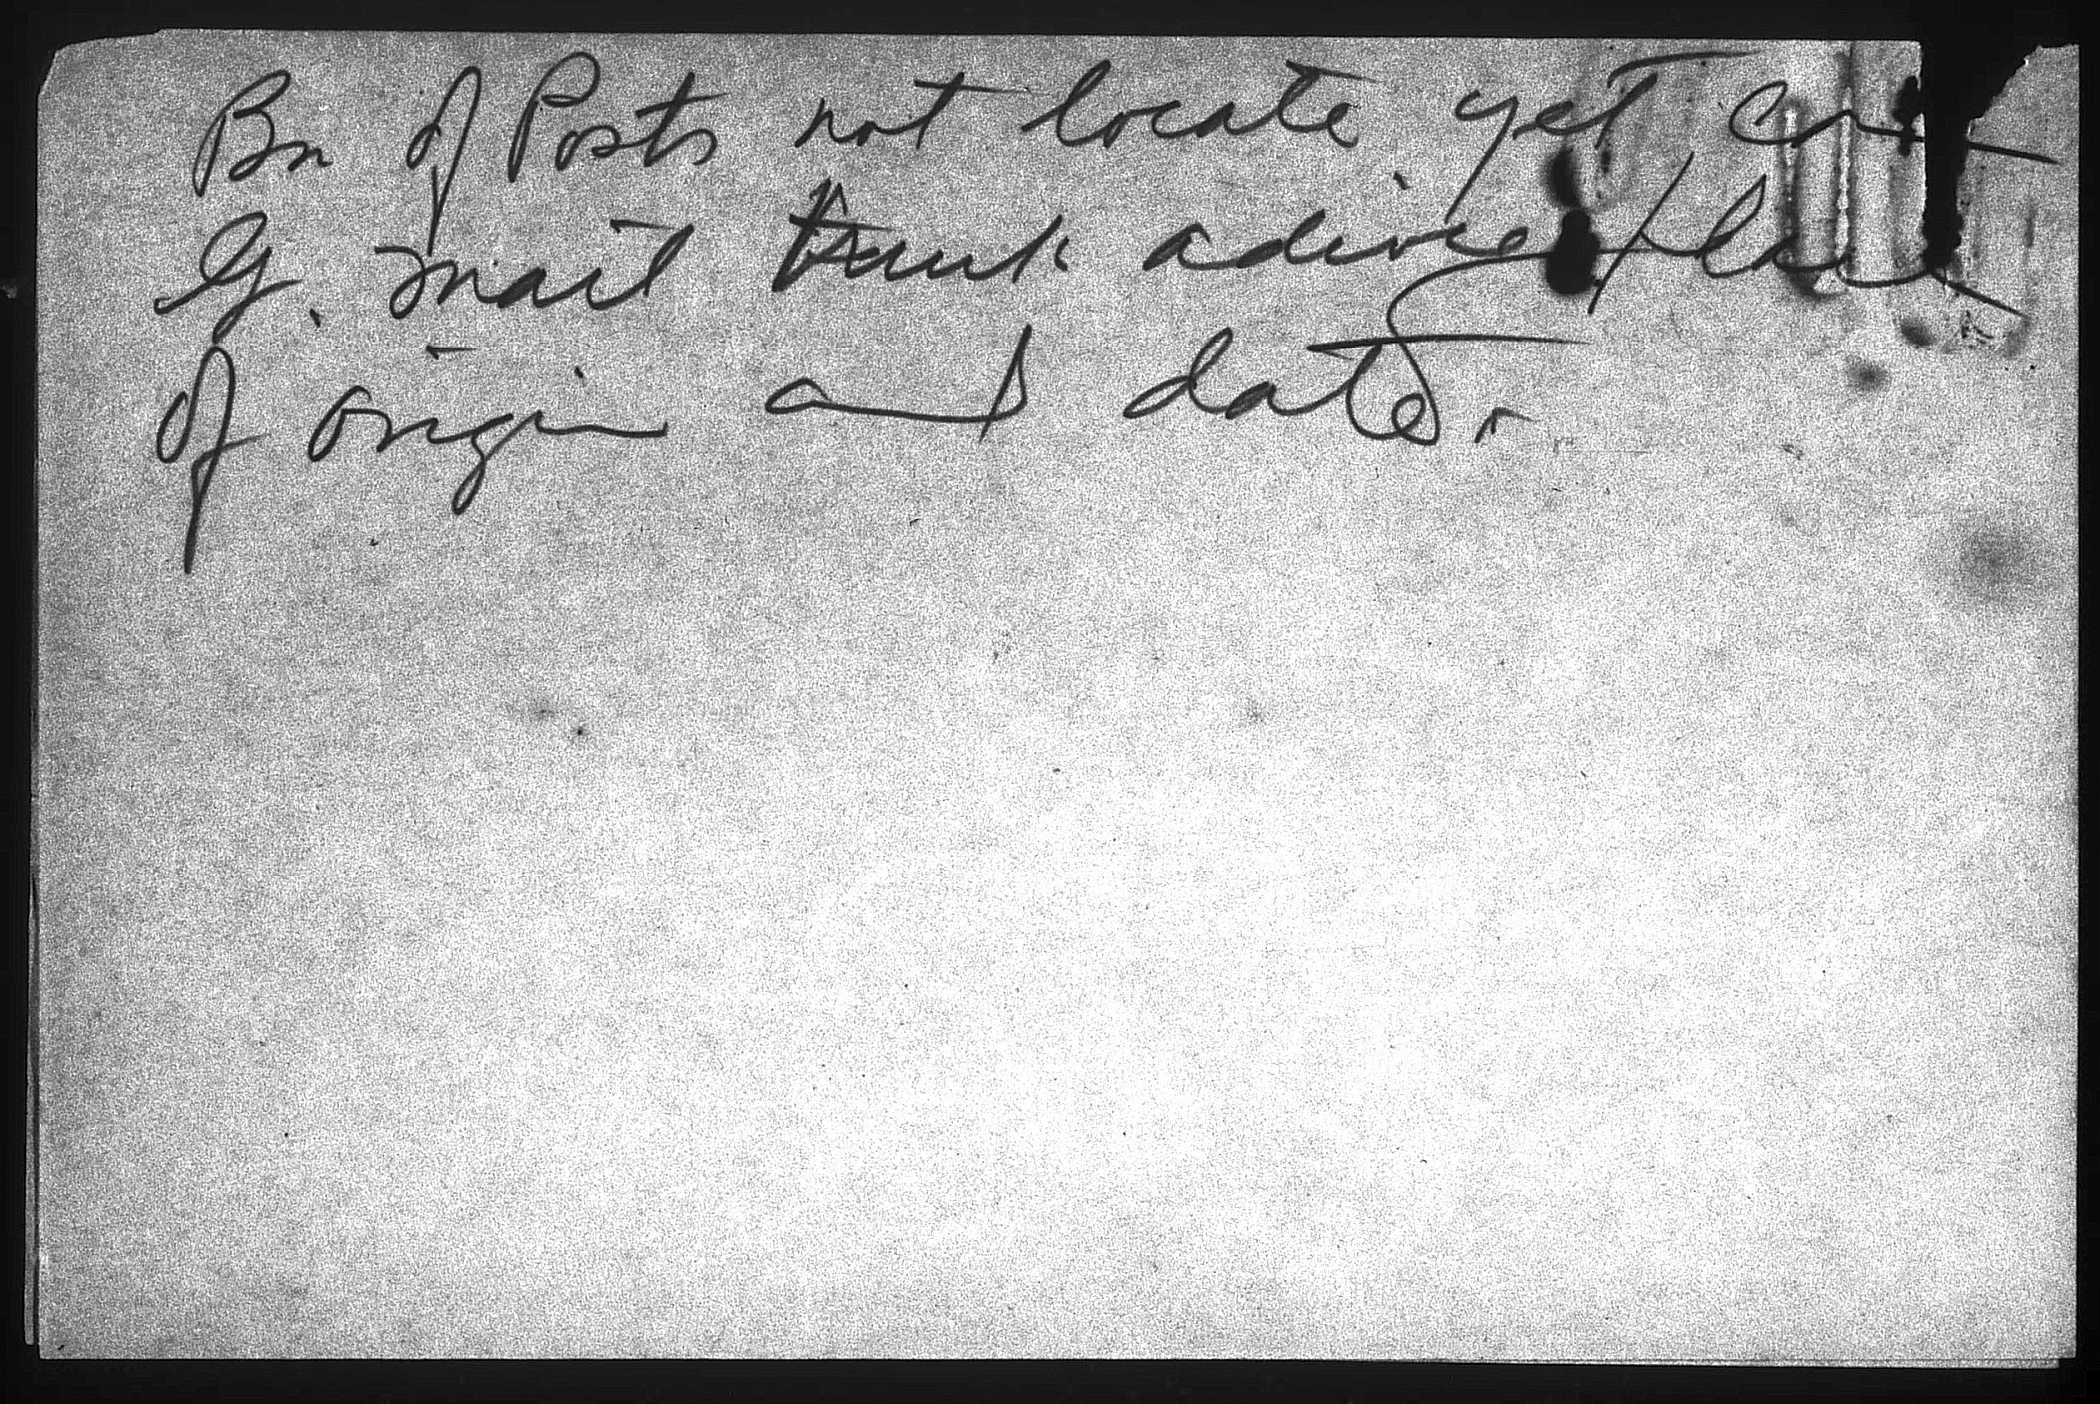 Bn of Posts not locate yet
G. mail trunk advise place
of origin and date.